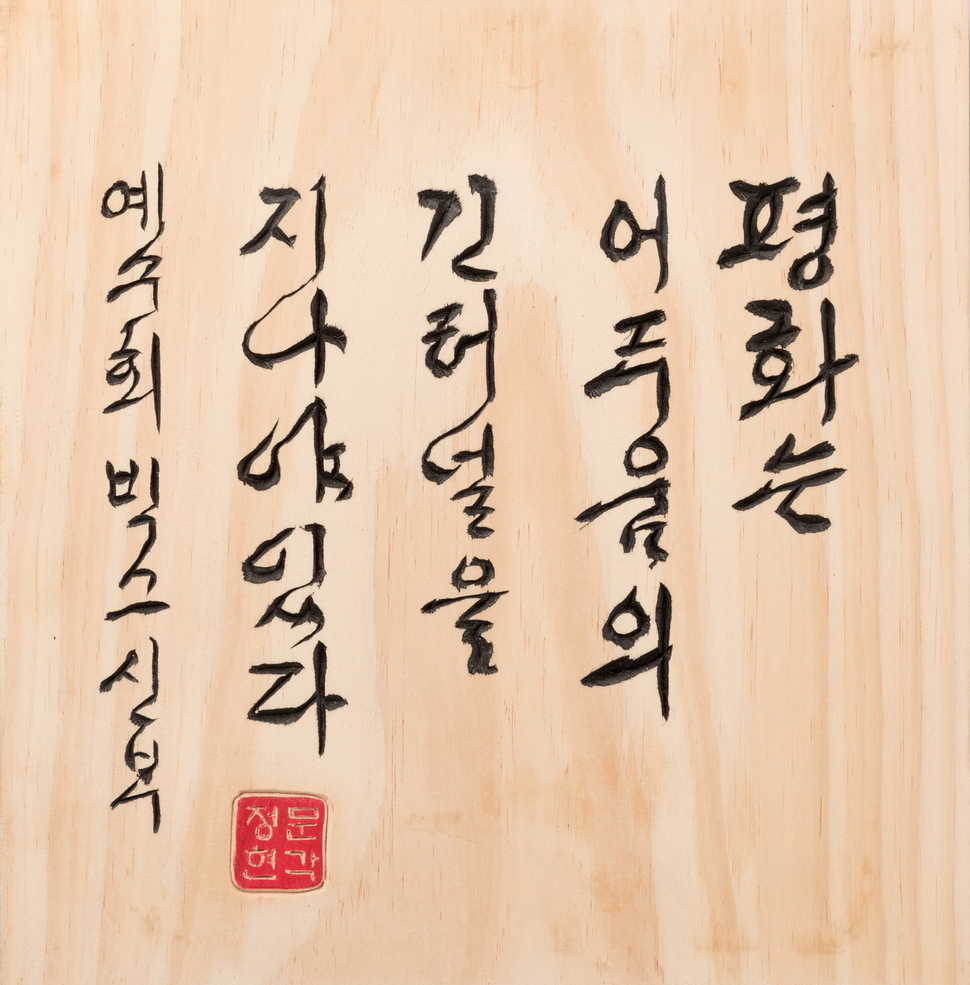 평화는
어두움의
긴 터널을
지나야 있다
예수회 빅스 신부
문각
정현